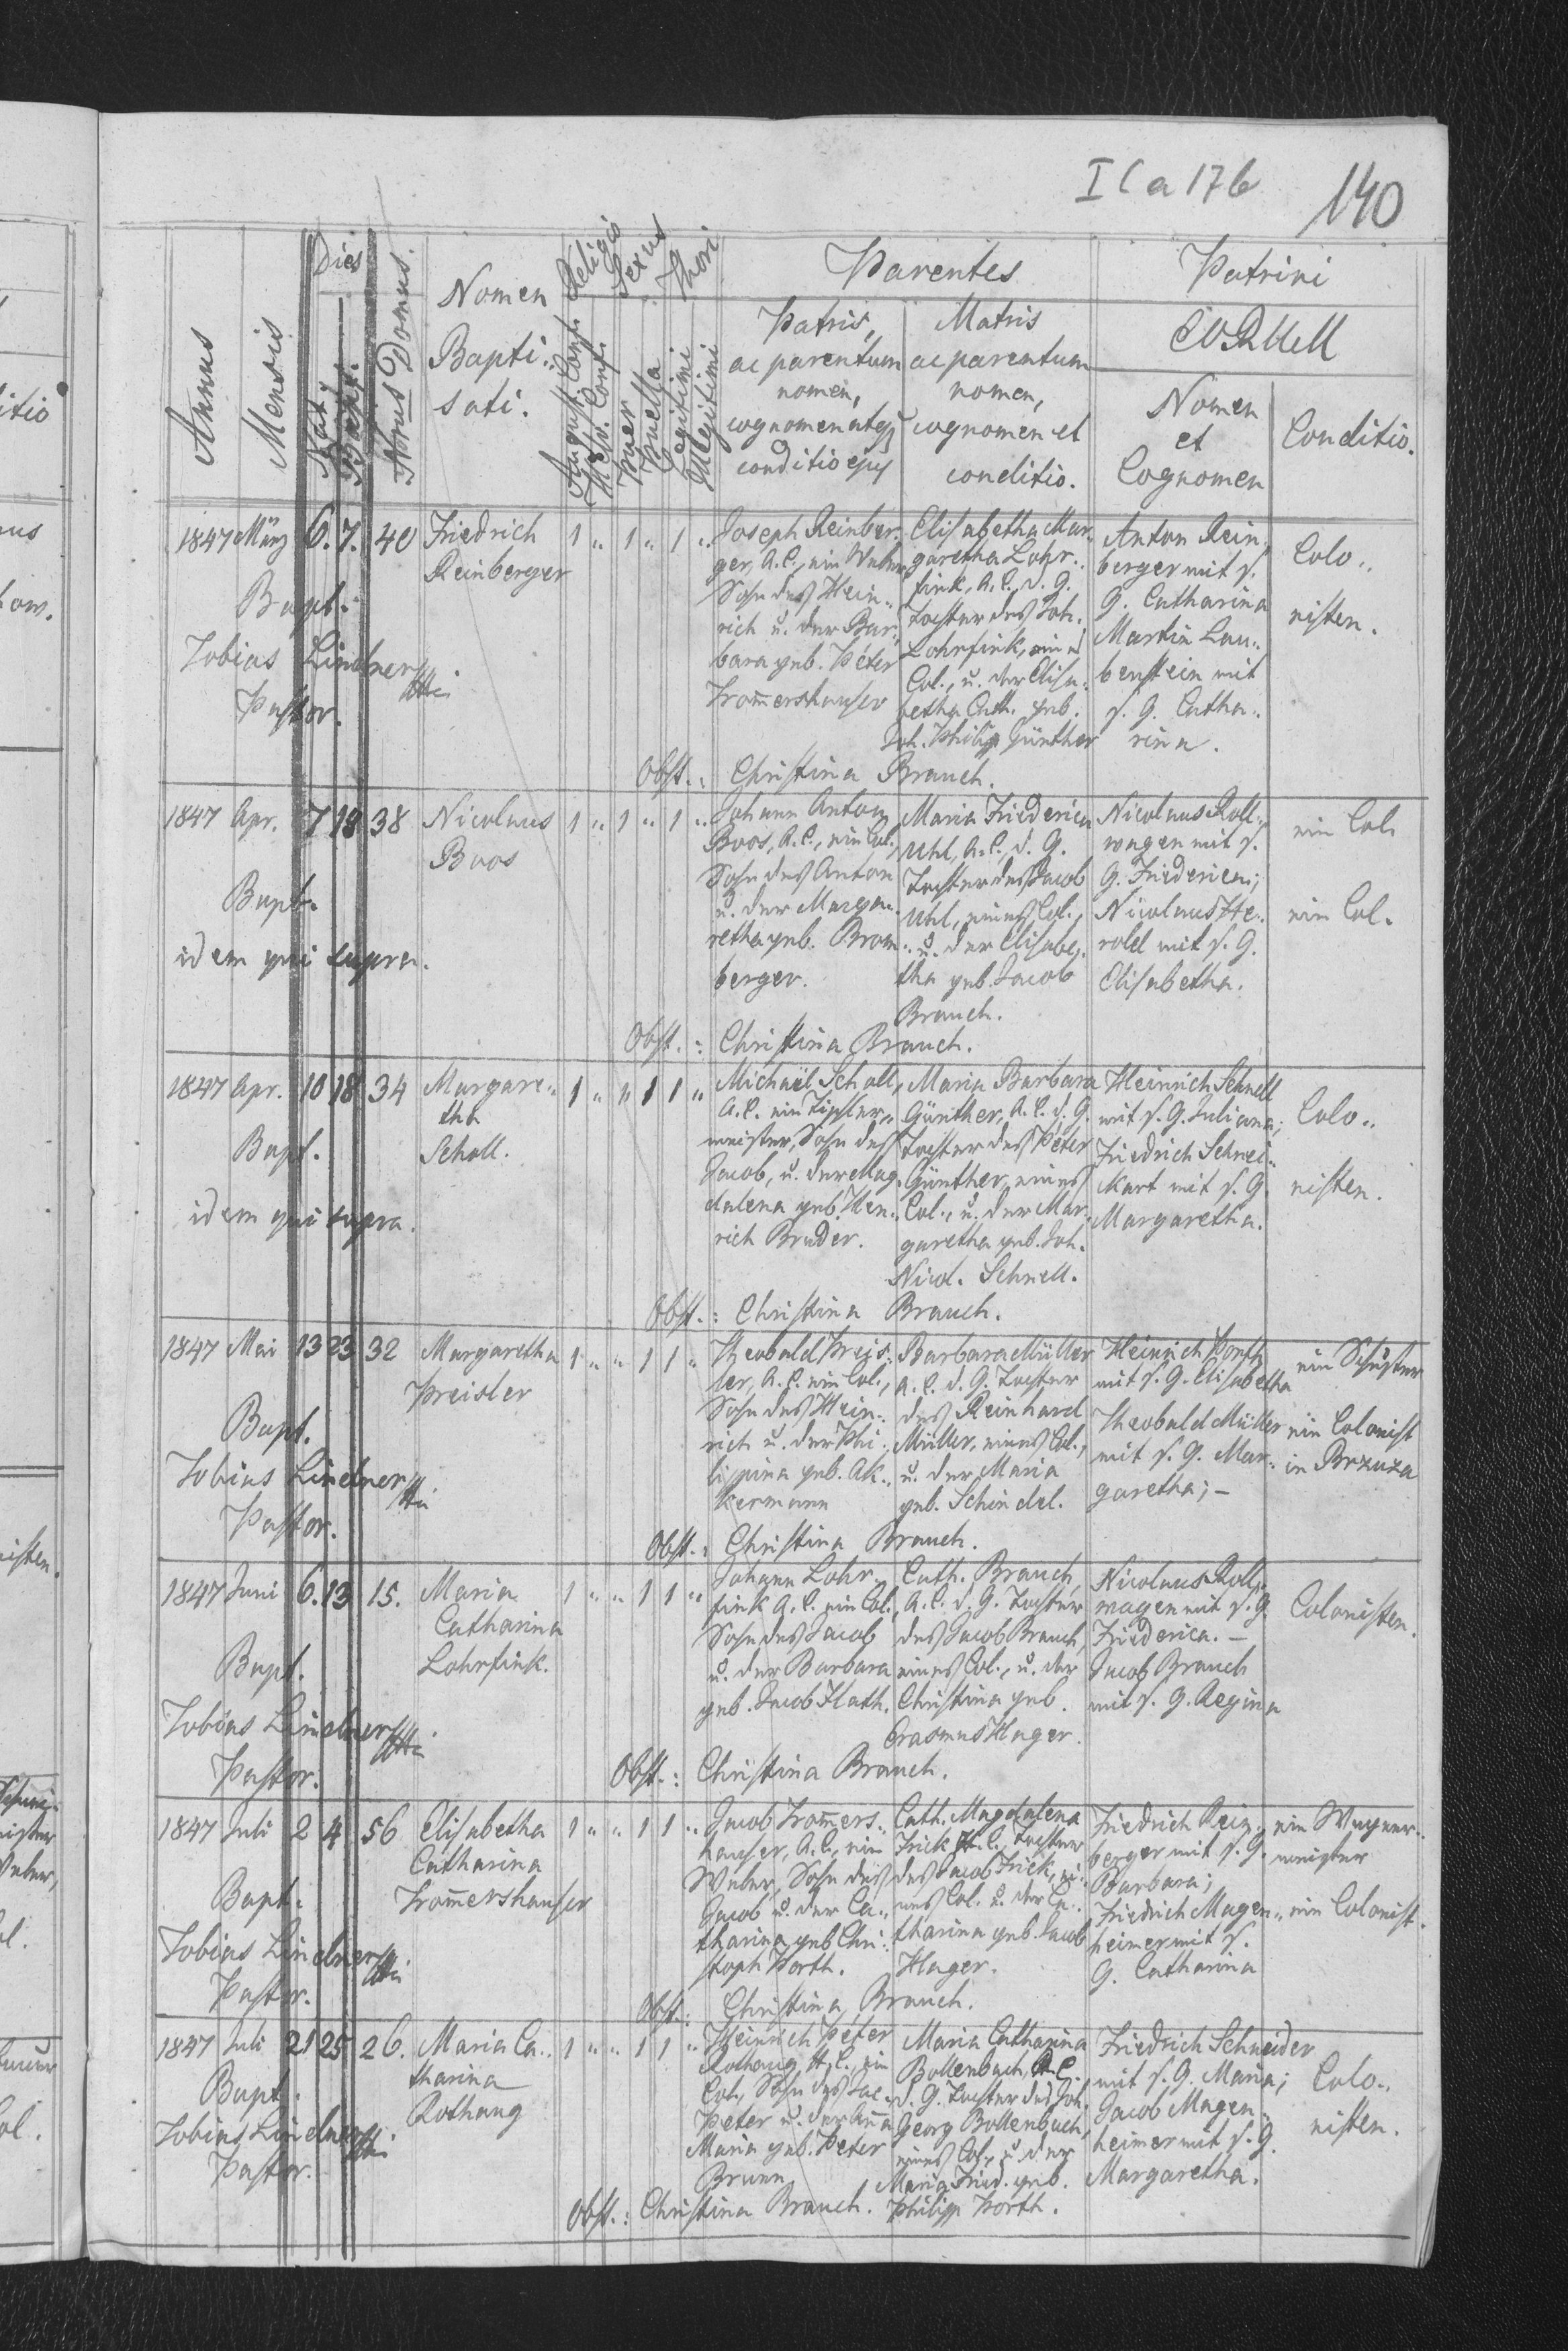 I C a 176
140
Annus
Mensis
Dies
Nat.
Bapt.
Nrus Domus.
Nomen
Bapti..
sati.
Religio
August. Conf.
Helv. Conf.
Sexus
Puer
Puella
Thori
Legitimi
Illegitimi
Parentes
Patris,
ac parentum
nomen,
cognomen atq
conditio ejus
Matris
ac parentum
nomen,
cognomen et
conditio.
Patrini
Nomen
et
Cognomen
Conditio.
1847 März 6. 7. 40 Friedrich
Reinberger
1 " 1 " 1 "
Bapt.
Tobias Lindner
Pastor.
Joseph Reinber..
ger, A. C., ein Weber
Sohn des Hein..
rich u. der Bar..
bara geb. Peter
Trom̄ershauser
Elisabetha Mar..
garetha Lohr..
fink, A. C. d. G.
Tochter des Joh.
Lohrfink, eines
Col., u. der Elisa..
betha Cath. geb.
Joh. Philip Günther
Anton Rein..
berger mit s.
G. Catharina
Martin Lau..
benstein mit
s. G. Catha..
rina.
Colo..
nisten.
Obst.: Christina Brauch.
1847 Apr. 7 18 38 Nicolaus
Boos
1 " 1 " 1 "
Bapt.
idem qui supra.
Johann Anton
Boos, A. C., ein Col.,
Sohn des Anton
u. der Marga..
retha geb. Brom..
berger.
Maria Friederica
Uhl, A. C., d. G.
Tochter des Jacob
Uhl, eines Col.,
u. der Elisabe..
tha geb. Jacob
Brauch.
Nicolaus Roll..
wagen mit s.
G. Friederica;
Nicolaus He..
rold mit s. G.
Elisabetha.
ein Col.
ein Col.
Obst.: Christina Brauch.
1847 Apr. 10 18 34 Margare..
tha
Scholl.
1 " " 1 1 "
Bapt.
idem qui supra.
Michaël Scholl,
A. C. ein Tischler..
meister, Sohn des
Jacob, u. der Mag..
dalena geb. Hen..
rich Bruder.
Maria Barbara
Günther, A. C. d. G.
Tochter des Peter
Günther, eines
Col., u. der Mar..
garetha geb. Joh.
Nicol. Schnell.
Heinrich Schnell
mit s. G. Juliana;
Friedrich Schnei..
kart mit s. G.
Margaretha.
Colo..
nisten.
Obst.: Christina Brauch.
1847 Mai 13 23 32 Margaretha
Preisler
1 " " 1 1 "
Bapt.
Tobias Lindner
Pastor.
Theobald Preis..
ler, A. C. ein Col.,
Sohn des Hein..
rich u. der Phi..
lippina geb. Ak..
kermann
Barbara Müller
A. C. d. G. Tochter
des Reinhard
Müller, eines Col.,
u. der Maria
geb. Schindel.
Heinrich
mit s. G. Elisabetha
Theobald Müller
mit s. G. Mar..
garetha; –
ein Schuster
ein Colonist
in Brzuza
Obst.: Christina Brauch.
1847 Juni 6. 13 15. Maria
Catharina
Lohrfink.
1 " " 1 1 "
Bapt.
Tobias Lindner
Pastor.
Johann Lohr..
fink A. C. ein Col.,
Sohn des Jacob
u. der Barbara
geb. Jacob Hath.
Cath. Brauch,
A. C. d. G. Tochter
des Jacob Brauch,
eines Col., u. der
Christina geb.
Erasmus Hager.
Nicolaus Roll..
wagen mit s. G.
Friederica. –
Jacob Brauch
mit s. G. Regina
Colonisten.
Obst.: Christina Brauch.
1847 Juli 2 4 56 Elisabetha
Catharina
Trom̄ershauser
1 " " 1 1 "
Bapt.
Tobias Lindner
Pastor.
Jacob Trom̄ers..
hauser, A. C., ein
Weber, Sohn des
Jacob u. der Ca..
tharina geb. Chri..
stoph Horth.
Cath. Magdalena
Frick H. C. Tochter
des Jacob Frick, ei..
nes Col. u. der Ca..
tharina geb. Jacob
Hager.
Friedrich Rein..
berger mit s. G.
Barbara;
Friedrich Magen..
heimer mit s.
G. Catharina
ein Wagner..
meister
ein Colonist.
Obst.: Christina Brauch.
1847 Juli 21 25 26. Maria Ca..
tharina
Rothaug
1 " " 1 1 "
Bapt.
Tobias Lindner
Pastor.
Heinrich Peter
Rothaug H. C., ein
Col., Sohn des Jac.
Peter u. der An̄a
Maria geb. Peter
Brunn
Maria Catharina
Bollenbach, A. C.
d. G. Tochter des Joh.
Georg Bollenbach,
eines Col., u. der
Maria Fried. geb.
Philipp Horth.
Friedrich Schneider
mit s. G. Maria;
Jacob Magen..
heimer mit s. G.
Margaretha.
Colo..
nisten.
Obst.: Christina Brauch.